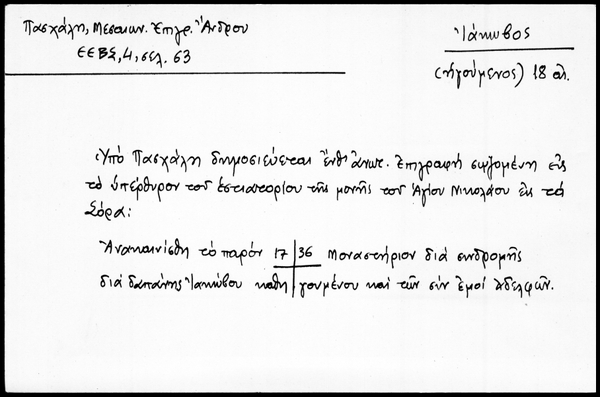 Πασχάλη, Μεσαιων. Ἐπιγρ. Ἄνδρου
ΕΕΒΣ, 4, σελ. 63
Ἰάκωβος
(ἡγούμενος) 18 αἰ.
Ὑπό Πασχάλη δημοσιεύεται ἔνθ' ἄνωτ. Ἐπιγραφή σωζομένη εἰς
τό ὑπέρθυρον τοῦ ἑστιατορίου τῆς μονῆς τοῦ Ἁγίου Νικολάου εἰς τά
Σόρα:
Ἀνακαινίσθη τό παρόν 17 36 Μοναστήριον διά συνδρομῆς
διά δαπάνης Ἰακώβου καθη γουμένου καί τῶν σύν ἐμοί ἀδελφῶν.